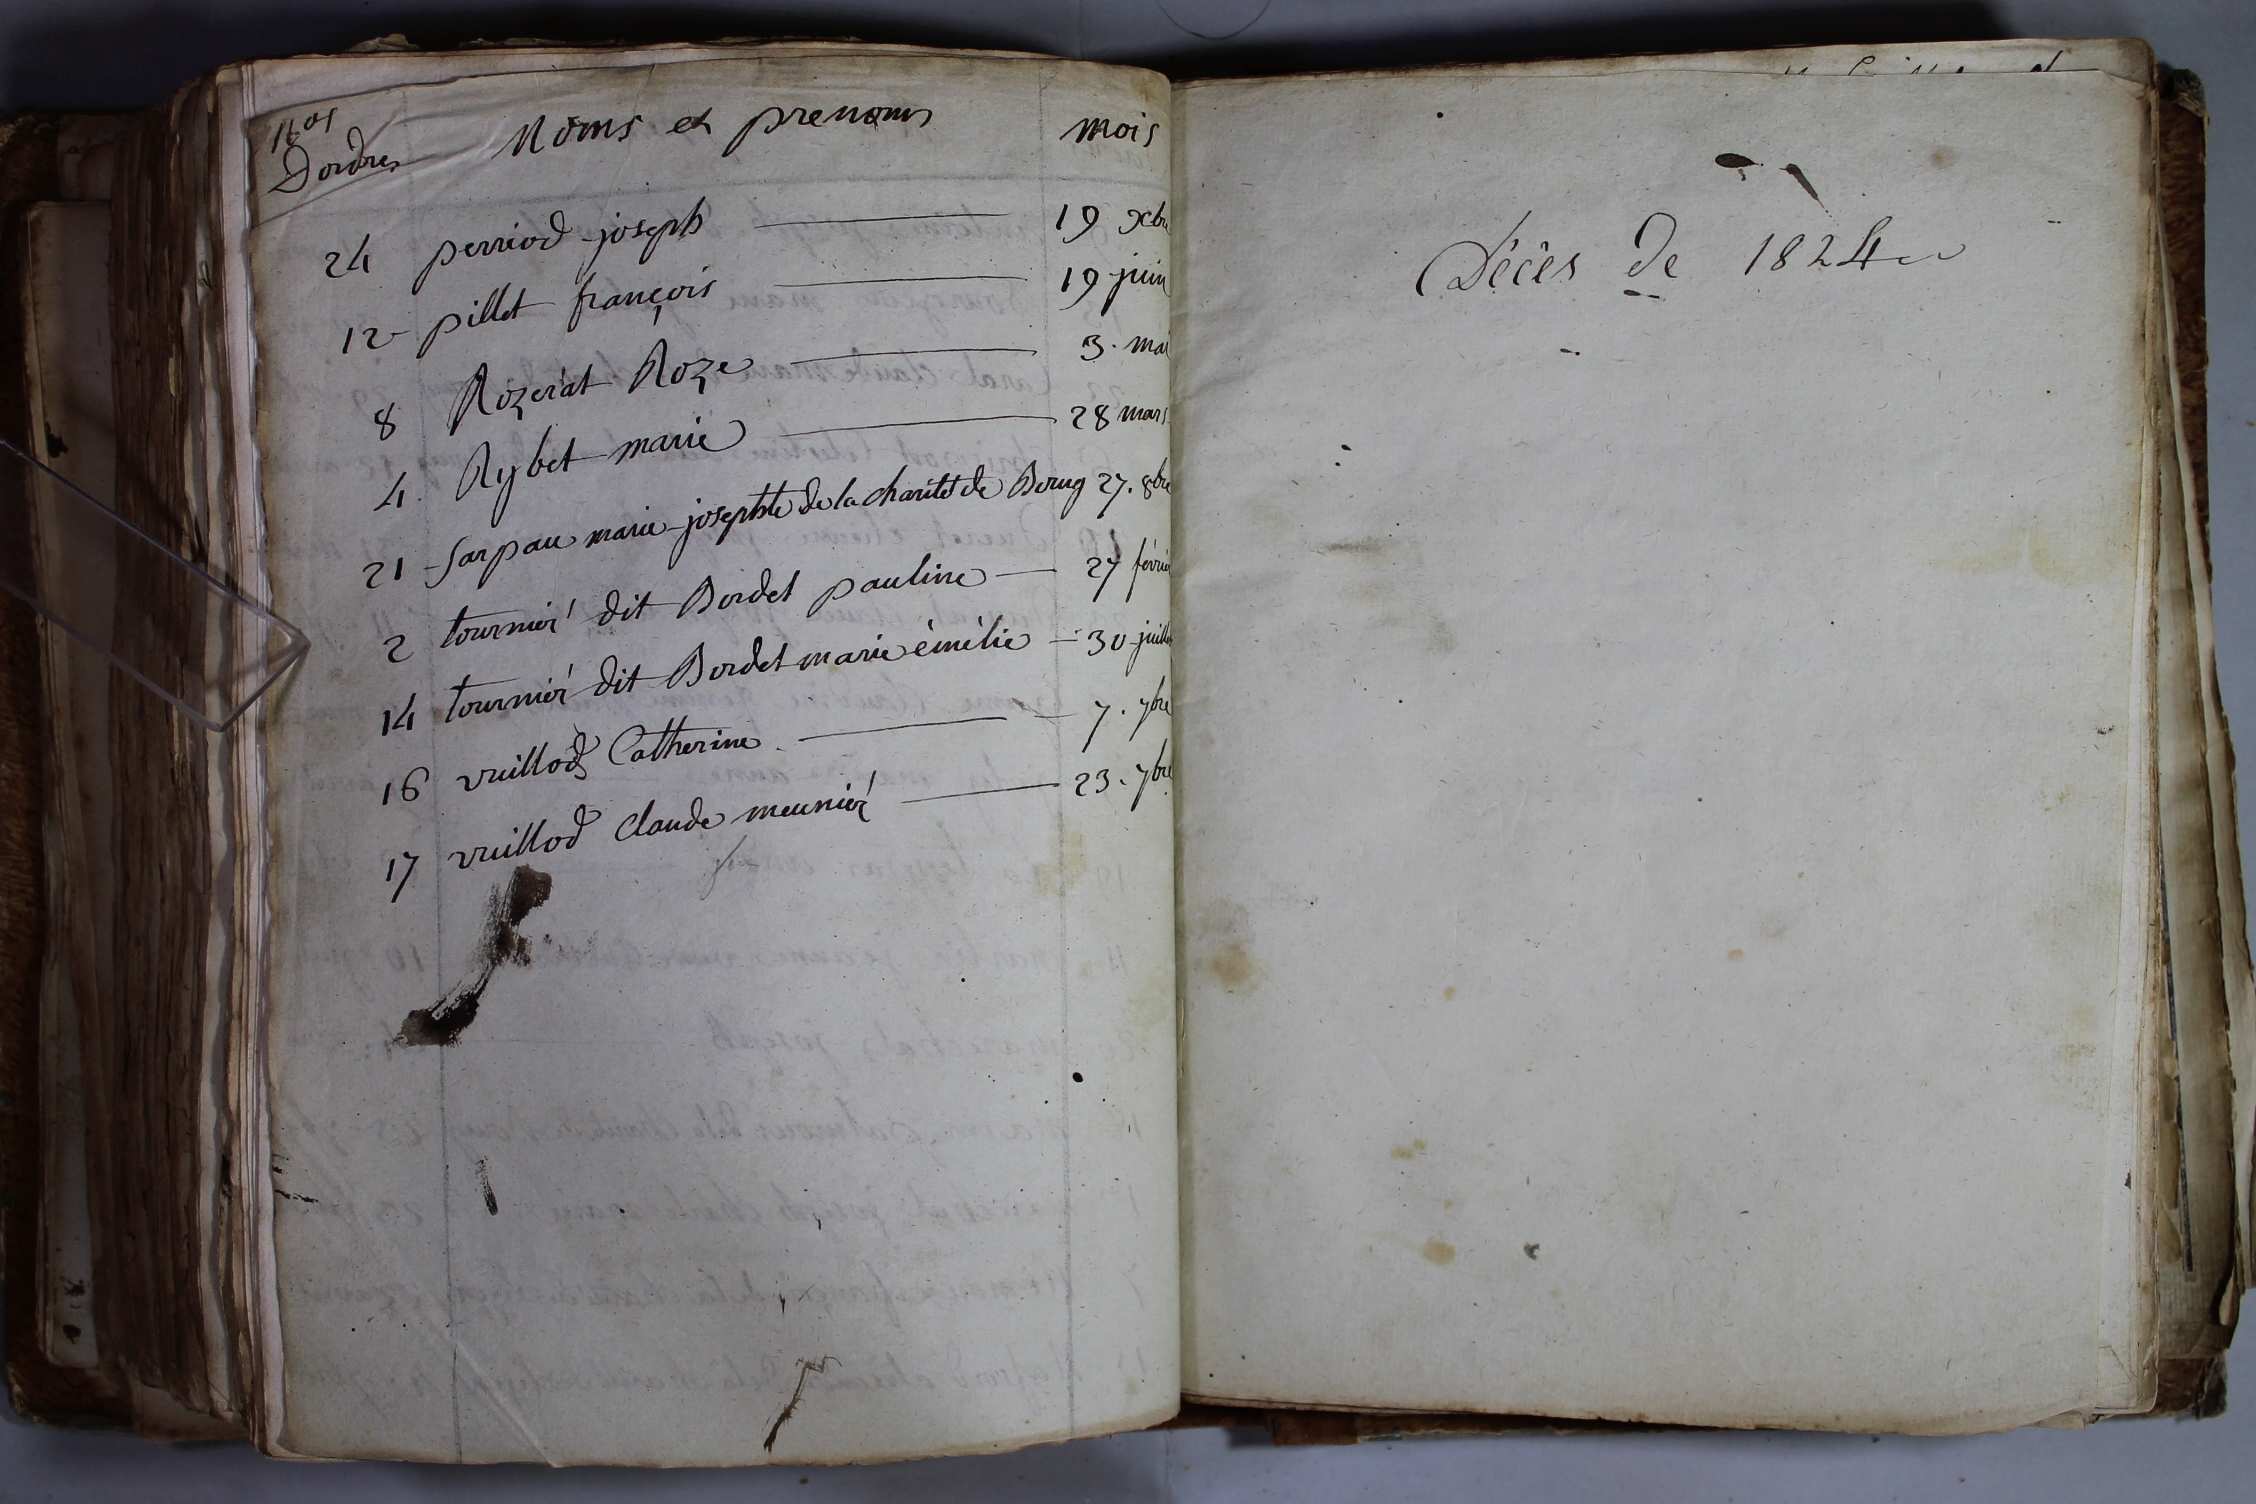 Nos
Dordres Noms et prenoms mois
24 perriod joseph 19 xbre
12 pillet françois 19 juin
8 Rozerat Roze 3. mai
4 Rybet marie 28 mars
21 Sarpau marie josephte de la charité de Bourg 27. 8bre
2 tournier dit Bordet pauline 27 février
14 tournier dit Bordet marie émélie 30 juillet
16 vuillod Catherine 7. 7bre
17 vuillod Claude meunier 23. 7bre
Décès de 1824